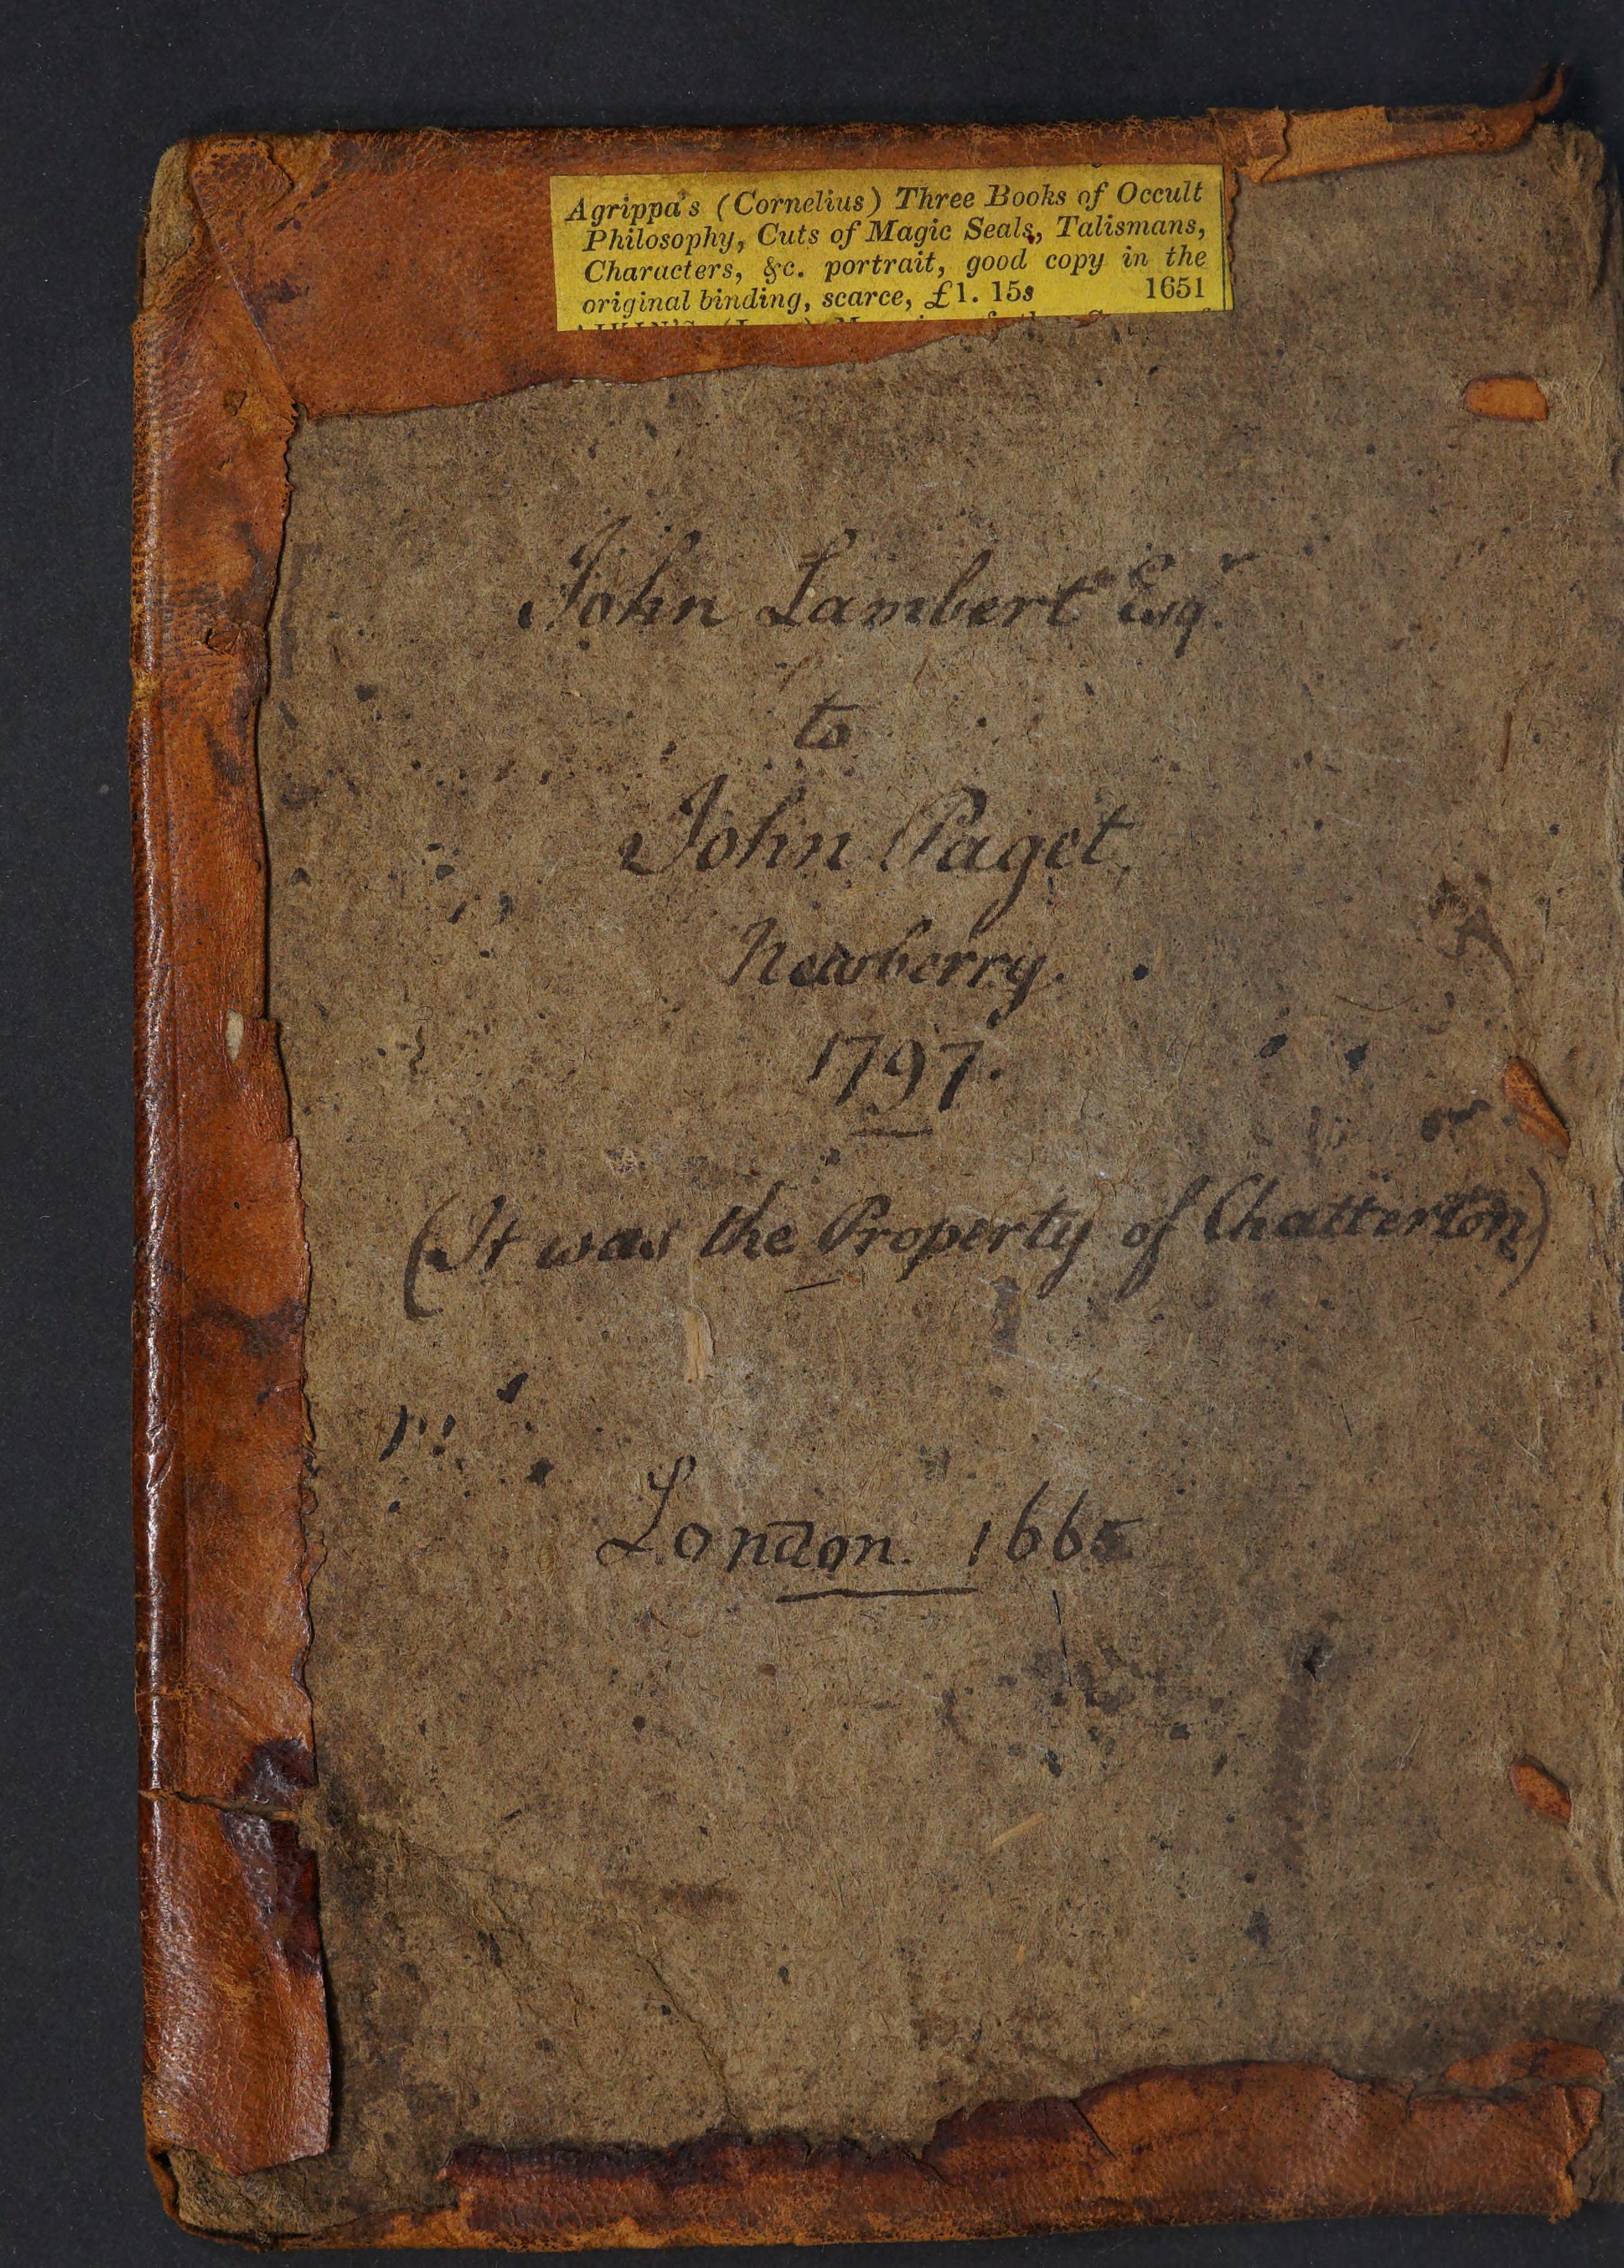 Agrippa's (Cornelius) Three Books of Occult
Philosophy, Cuts of Magic Seals, Talismans,
Characters, &c. portrait, good copy in the
original binding, scarce, £1. 15s 1651
John Lambert Esqr.
to
John Paget
Newberry.
1797.
(It was the Property of Chatterton)
London. 1665